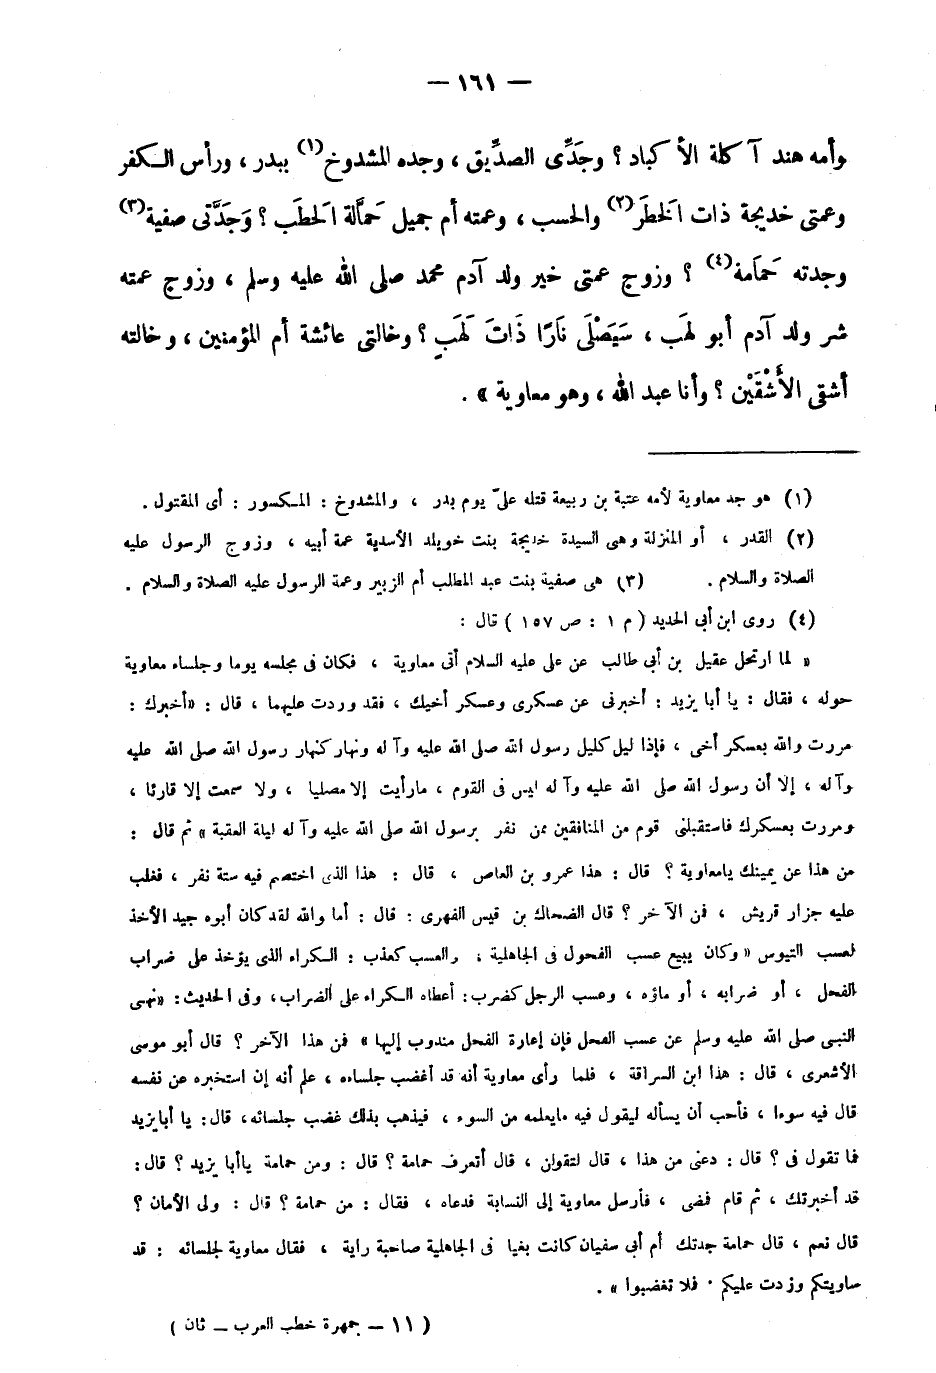 — ١٦١ —
وأمه هند آكلة الأكباد ؟ وجَدِّى الصدِّيق ، وجده المشدوخ(١) ببدر ، ورأس الـكفر
وعمتى خديجة ذات الخطَر(٢) والحسب ، وعمته أم جميل حَمالَّة الحطَب ؟ وَجَدَّتى صفية(٣)
وجدته حَمامَة(٤) ؟ وزوج عمتى خير ولد آدم محمد صلى الله عليه وسلم ، وزوج عمته
شر ولد آدم أبو لهَب ، سَيَصْلَى نَارًا ذَاتَ لَهَبٍ ؟ وخالتى عائشة أم المؤمنين ، وخالته
أشقى الأَشْقَيْن ؟ وأنا عبد الله ، وهو معاوية » .
(١) هو جد معاوية لأمه عتبة بن ربيعة قتله علىّ يوم بدر ، والمشدوخ : المـكسور : أى المقتول .
(٢) القدر ، أو المنزلة وهى السيدة خديجة بنت خويلد الأسدية عمة أبيه ، وزوج الرسول عليه
الصلاة والسلام . (٣) هى صفية بنت عبد المطلب أم الزبير وعمة الرسول عليه الصلاة والسلام .
(٤) روى ابن أبى الحديد ( م ١ : ص ١٥٧ ) قال :
« لما ارتحل عقيل بن أبى طالب عن على عليه السلام أتى معاوية ، فكان فى مجلسه يوما وجلساء معاوية
حوله ، فقال : يا أبا يزيد : أخبرنى عن عسكرى وعسكر أخيك ، فقد وردت عليهما ، قال : « أخبرك :
مررت والله بعسكر أخى ، فإذا ليل كليل رسول الله صلى الله عليه وآله ونهار كنهار رسول الله صلى الله عليه
وآله ، إلا أن رسول الله صلى الله عليه وآله ليس فى القوم ، مارأيت إلا مصليا ، ولا سمعت إلا قارئا ،
ومررت بعسكرك فاستقبلنى قوم من المنافقين ممن نفر برسول الله صلى الله عليه وآله ليلة العقبة » ثم قال :
من هذا عن يمينك يامعاوية ؟ قال : هذا عمرو بن العاص ، قال : هذا الذى اختصم فيه ستة نفر ، فغلب
عليه جزار قريش ، فمن الآخر ؟ قال الضحاك بن قيس الفهرى : قال : أما والله لقد كان أبوه جيد الأخذ
لعسب التيوس « وكان يبيع عسب الفحول فى الجاهلية ، والعسب كعذب : الـكراء الذى يؤخذ على ضراب
الفحل ، أو ضرابه ، أو ماؤه ، وعسب الرجل كضرب : أعطاه الـكراء على الضراب ، وفى الحديث : « نهى
النبى صلى الله عليه وسلم عن عسب الفحل فإن إعارة الفحل مندوب إليها » فمن هذا الآخر ؟ قال أبو موسى
الأشعرى ، قال : هذا ابن السراقة ، فلما رأى معاوية أنه قد أغضب جلساءه ، علم أنه إن استخبره عن نفسه
قال فيه سوءا ، فأحب أن يسأله ليقول فيه مايعلمه من السوء ، فيذهب بذلك غضب جلسائه ، قال : يا أبا يزيد
فما تقول فى ؟ قال : دعنى من هذا ، قال لتقولن ، قال أتعرف حمامة ؟ قال : ومن حمامة ياأبا يزيد ؟ قال :
قد أخبرتك ، ثم قام فمضى ، فأرسل معاوية إلى النسابة فدعاه ، فقال : من حمامة ؟ قال : ولى الأمان ؟
قال نعم ، قال حمامة جدتك أم أبى سفيان كانت بغيا فى الجاهلية صاحبة راية ، فقال معاوية لجلسائه : قد
ساويتكم وزدت عليكم . فلا تغضبوا » .
( ١١ – جمهرة خطب العرب – ثان )